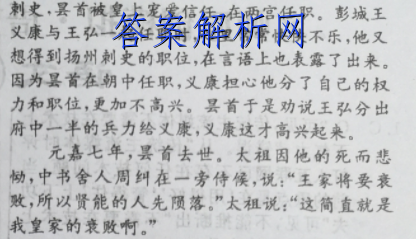 刺史，昙首被皇上宠爱信任，在两宫任职。彭城王
义康与王弘一
答案解析网
任
不乐，他又
想得到扬州刺史的职位，在言语上也表露了出来。
因为昙首在朝中任职，义康担心他分了自己的权
力和职位，更加不高兴。昙首于是劝说王弘分出
府中一半的兵力给义康，义康这才高兴起来。
元嘉七年，昙首去世。太祖因他的死而悲
恸，中书舍人周纠在一旁侍候，说：“王家将要衰
败，所以贤能的人先陨落。”太祖说：“这简直就是
我皇家的衰败啊。”